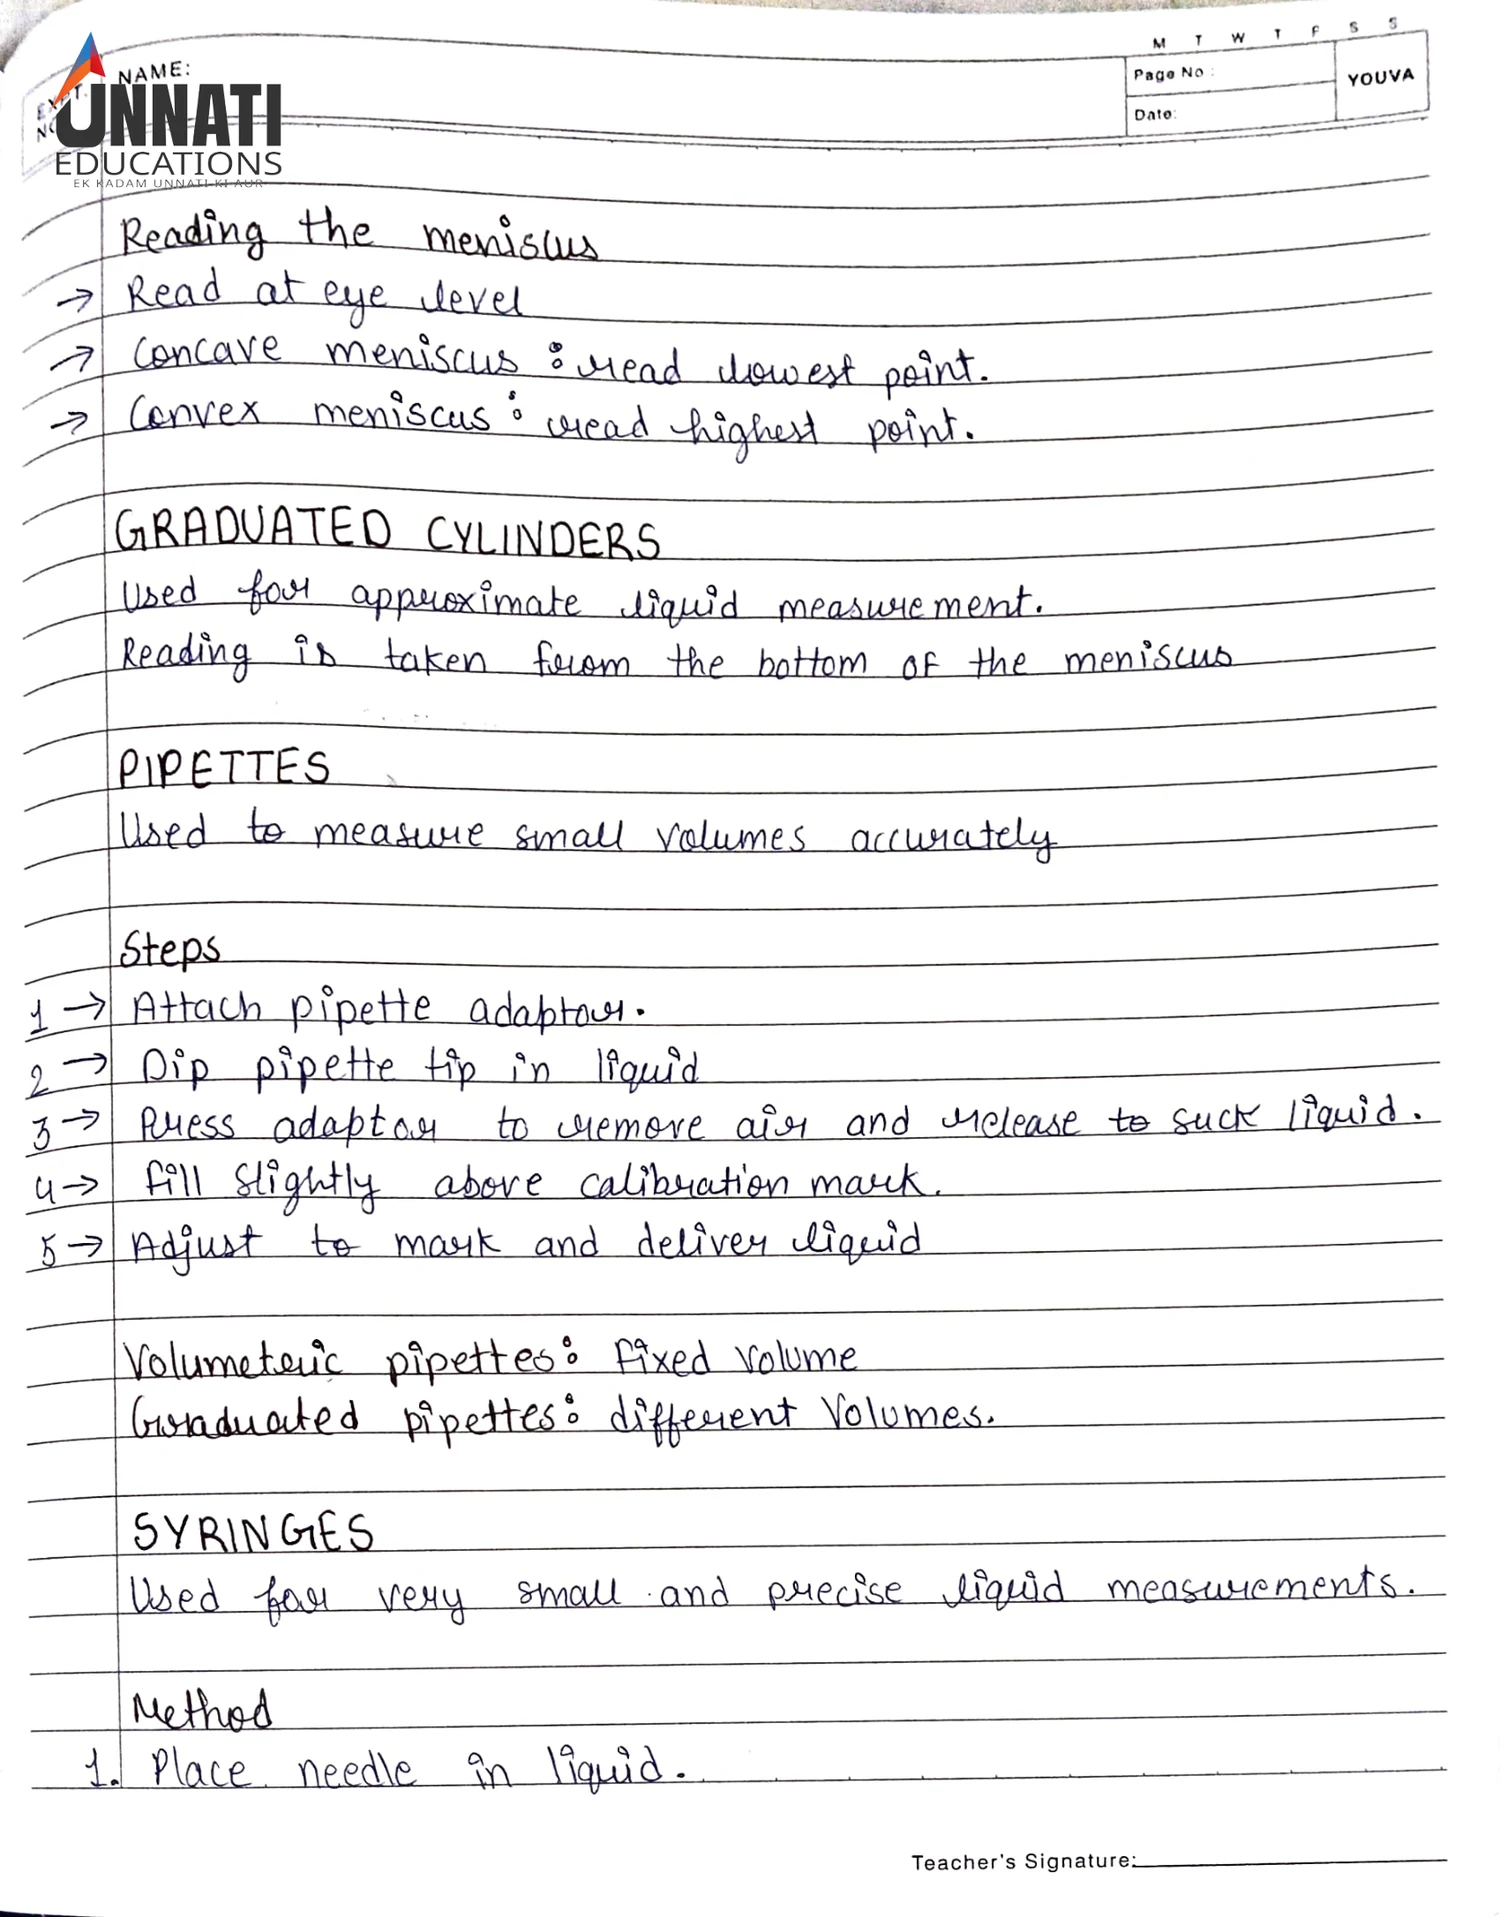 M T W T F S S
NAME:
Page No :
YOUVA
Date:
UNNATI
EDUCATIONS
EK KADAM UNNATI KI AUR
Reading the meniscus
→ Read at eye level
→ Concave meniscus : read lowest point.
→ Convex meniscus : read highest point.
GRADUATED CYLINDERS
Used for approximate liquid measurement.
Reading is taken from the bottom of the meniscus
PIPETTES
Used to measure small volumes accurately
Steps
1 → Attach pipette adaptor.
2 → Dip pipette tip in liquid
3 → Press adaptor to remove air and release to suck liquid.
4 → Fill slightly above calibration mark.
5 → Adjust to mark and deliver liquid
Volumetric pipettes: Fixed Volume
Graduated pipettes: different Volumes.
SYRINGES
Used for very small and precise liquid measurements.
Method
1. Place needle in liquid.
Teacher's Signature: